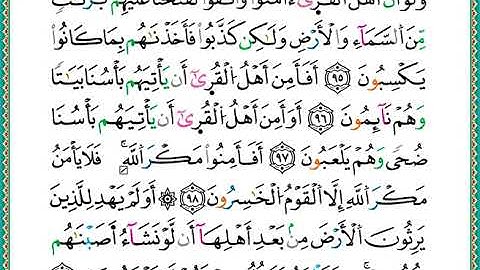 وَلَوْ أَنَّ أَهْلَ الْقُرَىٰٓ ءَامَنُوا وَاتَّقَوْا لَفَتَحْنَا عَلَيْهِم بَرَكَٰتٍ
مِّنَ السَّمَآءِ وَالْأَرْضِ وَلَٰكِن كَذَّبُوا فَأَخَذْنَٰهُم بِمَا كَانُوا
يَكْسِبُونَ ٩٥ أَفَأَمِنَ أَهْلُ الْقُرَىٰٓ أَن يَأْتِيَهُم بَأْسُنَا بَيَٰتًا
وَهُمْ نَآئِمُونَ ٩٦ أَوَأَمِنَ أَهْلُ الْقُرَىٰٓ أَن يَأْتِيَهُم بَأْسُنَا
ضُحًى وَهُمْ يَلْعَبُونَ ٩٧ أَفَأَمِنُوا مَكْرَ اللَّهِ فَلَا يَأْمَنُ
مَكْرَ اللَّهِ إِلَّا الْقَوْمُ الْخَٰسِرُونَ ٩٨ ۞ أَوَلَمْ يَهْدِ لِلَّذِينَ
يَرِثُونَ الْأَرْضَ مِنۢ بَعْدِ أَهْلِهَآ أَن لَّوْ نَشَآءُ أَصَبْنَٰهُم